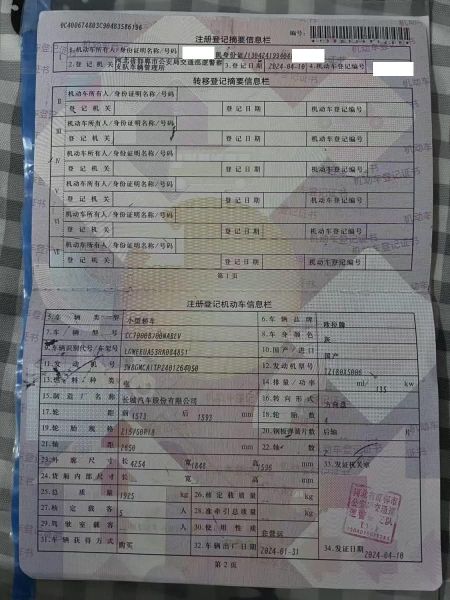 注册登记摘要信息栏
编号:
1.机动车所有人/身份证明名称/号码
2.登记机关 河北省邯郸市公安局交通巡逻警察支队车辆管理所 3.登记日期 2024-04-10 4.机动车登记编号
转移登记摘要信息栏
Ⅱ 机动车所有人/身份证明名称/号码
登记机关 登记日期 机动车登记编号
Ⅲ 机动车所有人/身份证明名称/号码
登记机关 登记日期 机动车登记编号
Ⅳ 机动车所有人/身份证明名称/号码
登记机关 登记日期 机动车登记编号
Ⅴ 机动车所有人/身份证明名称/号码
登记机关 登记日期 机动车登记编号
Ⅵ 机动车所有人/身份证明名称/号码
登记机关 登记日期 机动车登记编号
Ⅶ 机动车所有人/身份证明名称/号码
登记机关 登记日期 机动车登记编号
第1页
注册登记机动车信息栏
5.车辆类型 小型轿车 6.车辆品牌 欧拉牌
7.车辆型号 8.车身颜色
9.车辆识别代号/车架号 10.国产/进口 国产
11.发动机号 12.发动机型号 TZ180XS006
13.燃料种类 电 14.排量/功率 ml/ 135 kw
15.制造厂名称 长城汽车股份有限公司 16.转向形式 方向盘
17.轮距 前 1573 后 1593 mm 18.轮胎数 4
19.轮胎规格 215/50R18 20.钢板弹簧片数 后轴 片
21.轴距 2650 mm 22.轴数 2
23.外廓尺寸 长 4254 宽 1848 高 1596 mm 33.发证机关章
24.货厢内部尺寸 长 宽 高 mm
25.总质量 1925 kg 26.核定载质量 kg
27.核定载客 5 人 28.准牵引总质量 kg
29.驾驶室载客 人 30.使用性质 非营运
31.车辆获得方式 购买 32.车辆出厂日期 2024-01-31 34.发证日期 2024-04-10
第2页